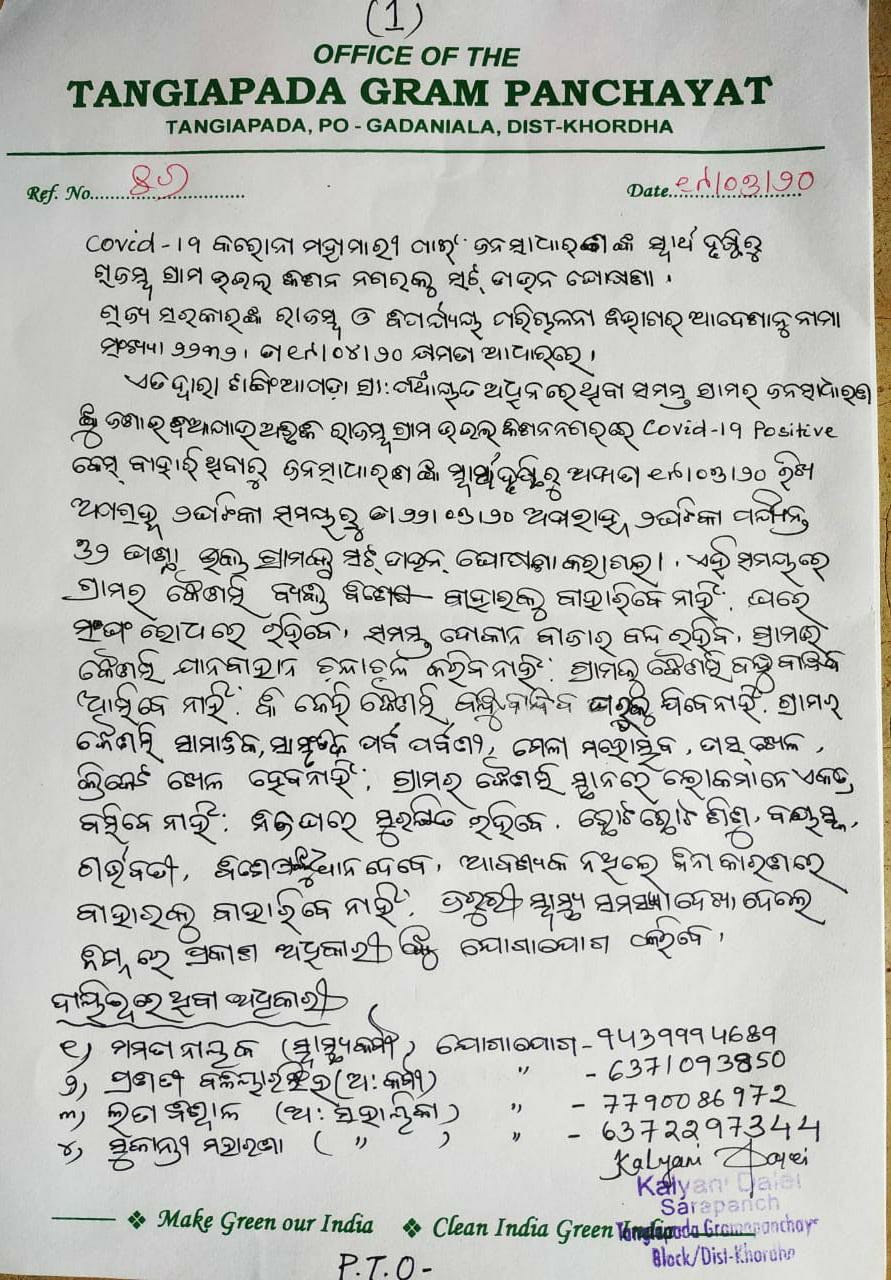 (1)
OFFICE OF THE
TANGIAPADA GRAM PANCHAYAT
TANGIAPADA, PO - GADANIALA, DIST-KHORDHA
Ref. No. ୫୬ Date. ୧୯/୦୬/୨୦
Covid-19 କରୋନା ମହାମାରୀ ପାଇଁ ଜନସାଧାରଣଙ୍କ ସ୍ୱାର୍ଥ ଦୃଷ୍ଟିରୁ
ରାଜସ୍ୱ ଗ୍ରାମ ଭଇଲ କିଶନ ନଗରକୁ ସଟ୍ ଡାଉନ ଘୋଷଣା ।
ରାଜ୍ୟ ସରକାରଙ୍କ ରାଜସ୍ୱ ଓ ବିପର୍ଯ୍ୟୟ ପରିଚାଳନା ବିଭାଗର ଆଦେଶାନୁନାମା
ସଂଖ୍ୟା ୨୨୩୨। ତା ୧୯/୦୪/୨୦ କ୍ଷମତା ଆଧାରରେ।
ଏତଦ୍ୱାରା ଟାଙ୍ଗିଆପଡ଼ା ଗ୍ରା: ପଞ୍ଚାୟତ ଅଧିନରେ ଥିବା ସମସ୍ତ ଗ୍ରାମର ଜନସାଧାରଣ
ଙ୍କୁ ଜଣାଇ ଦିଆଯାଇଅଛି କି ରାଜସ୍ୱ ଗ୍ରାମ ଭଇଲ କିଶନନଗରରେ Covid-19 Positive
କେସ୍ ବାହାରିଥିବାରୁ ଜନସାଧାରଣଙ୍କ ସ୍ୱାର୍ଥ ଦୃଷ୍ଟିରୁ ଅଦ୍ୟ ତା ୧୯/୦୬/୨୦ ରିଖ
ଅପରାହ୍ନ ୨ଘଟିକା ସମୟରୁ ତା ୨୨/୦୬/୨୦ ଅପରାହ୍ନ ୨ଘଟିକା ପର୍ଯ୍ୟନ୍ତ
୭୨ ଘଣ୍ଟା ଉକ୍ତ ଗ୍ରାମକୁ ସଟ୍ ଡାଉନ୍ ଘୋଷଣା କରାଗଲା। ଏହି ସମୟରେ
ଗ୍ରାମର କୌଣସି ବ୍ୟକ୍ତି ବିଶେଷ ବାହାରକୁ ବାହାରିବେ ନାହିଁ. ଘରେ
ସଂଗରୋଧରେ ରହିବେ, ସମସ୍ତ ଦୋକାନ ବଜାର ବନ୍ଦ ରହିବ, ଗ୍ରାମରେ
କୌଣସି ଯାନବାହାନ ଚଳାଚଳ କରିବ ନାହିଁ. ଗ୍ରାମକୁ କୌଣସି ବନ୍ଧୁବାନ୍ଧବ
ଆସିବେ ନାହିଁ. କି କେହି କୌଣସି ବନ୍ଧୁବାନ୍ଧବ ଘରକୁ ଯିବେନାହିଁ. ଗ୍ରାମର
କୌଣସି ସାମାଜିକ, ସାଂସ୍କୃତିକ ପର୍ବ ପର୍ବାଣୀ, ମେଳା ମହୋତ୍ସବ, ତାସ୍ ଖେଳ,
କ୍ରିକେଟ ଖେଳ ହେବନାହିଁ, ଗ୍ରାମର କୌଣସି ସ୍ଥାନରେ ଲୋକମାନେ ଏକତ୍ର
ବସିବେ ନାହିଁ. ନିଜ ଘରେ ସୁରକ୍ଷିତ ରହିବେ. ଛୋଟ ଛୋଟ ଶିଶୁ, ବୟସ୍କ,
ଗର୍ଭବତୀ, ପ୍ରତି ଧ୍ୟାନ ଦେବେ, ଆବଶ୍ୟକ ନଥିଲେ ବିନା କାରଣରେ
ବାହାରକୁ ବାହାରିବେ ନାହିଁ. ଜରୁରୀ ସ୍ୱାସ୍ଥ୍ୟ ସମସ୍ୟା ଦେଖା ଦେଲେ
ନିମ୍ନରେ ପ୍ରକାଶ ଅଧିକାରୀଙ୍କୁ ଯୋଗାଯୋଗ କରିବେ,
ଦାୟିତ୍ୱରେ ଥିବା ଅଧିକାରୀ
୧) ମମତା ନାୟକ (ସ୍ୱାସ୍ଥ୍ୟକର୍ମୀ) ଯୋଗାଯୋଗ - 9439994689
୨) ପ୍ରଣତୀ ବଳିୟାରସିଂହ (ଅ: କର୍ମୀ) " - 6371093850
୩) ଲତା ବିଶ୍ୱାଳ (ଅ: ସହାୟିକା) " - 7790086972
୪) ସୁକାନ୍ତୀ ମହାରଣା ( " ) " - 6372297344
Kalyani Dalei
Kalyani Dalei
Sarapanch
Tangiapada Gramapanchayat
Block/Dist-Khordha
❖ Make Green our India ❖ Clean India Green India
P.T.O -